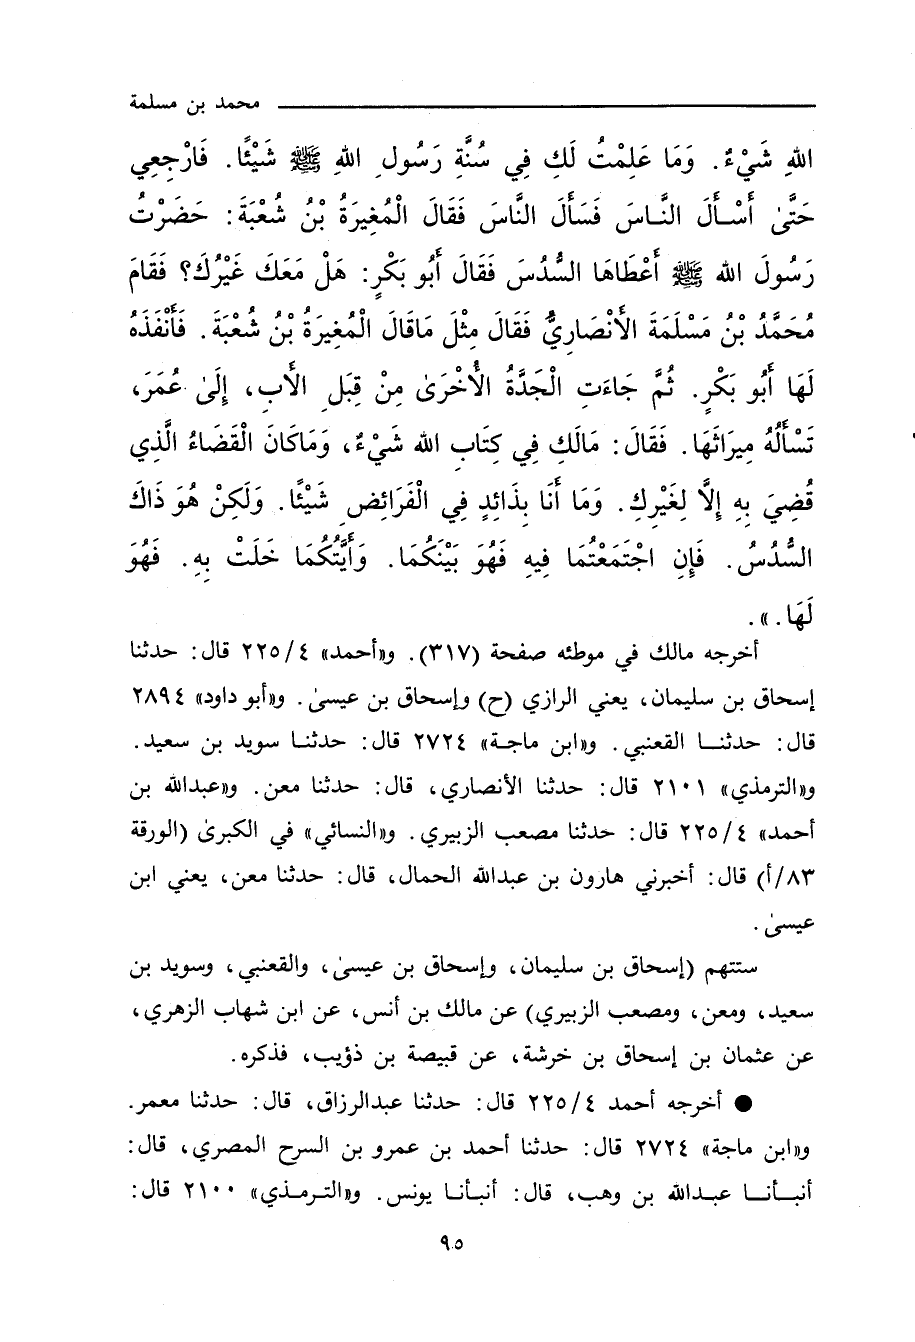 محمد بن مسلمة
اللهِ شَيْءٌ. وَمَا عَلِمْتُ لَكِ فِي سُنَّةِ رَسُولِ اللهِ ﷺ شَيْئًا. فَارْجِعِي
حَتَّىٰ أَسْأَلَ النَّاسَ فَسَأَلَ النَّاسَ فَقَالَ الْمُغِيرَةُ بْنُ شُعْبَةَ: حَضَرْتُ
رَسُولَ الله ﷺ أَعْطَاهَا السُّدُسَ فَقَالَ أَبُو بَكْرٍ: هَلْ مَعَكَ غَيْرُكَ؟ فَقَامَ
مُحَمَّدُ بْنُ مَسْلَمَةَ الأَنْصَارِيُّ فَقَالَ مِثْلَ مَاقَالَ الْمُغِيرَةُ بْنُ شُعْبَةَ. فَأَنْفَذَهُ
لَهَا أَبُو بَكْرٍ. ثُمَّ جَاءَتِ الْجَدَّةُ الأُخْرَىٰ مِنْ قِبَلِ الأَبِ، إِلَىٰ عُمَرَ،
تَسْأَلُهُ مِيرَاثَهَا. فَقَالَ: مَالَكِ فِي كِتَابِ الله شَيْءٌ، وَمَاكَانَ الْقَضَاءُ الَّذِي
قُضِيَ بِهِ إِلَّا لِغَيْرِكِ. وَمَا أَنَا بِذَائِدٍ فِي الْفَرَائِضِ شَيْئًا. وَلَكِنْ هُوَ ذَاكَ
السُّدُسُ. فَإِنِ اجْتَمَعْتُمَا فِيهِ فَهُوَ بَيْنَكُمَا. وَأَيَّتُكُمَا خَلَتْ بِهِ. فَهُوَ
لَهَا.».
أخرجه مالك في موطئه صفحة (٣١٧). و«أحمد» ٢٢٥/٤ قال: حدثنا
إسحاق بن سليمان، يعني الرازي (ح) وإسحاق بن عيسىٰ. و«أبو داود» ٢٨٩٤
قال: حدثنا القعنبي. و«ابن ماجة» ٢٧٢٤ قال: حدثنا سويد بن سعيد.
و«الترمذي» ٢١٠١ قال: حدثنا الأنصاري، قال: حدثنا معن. و«عبدالله بن
أحمد» ٢٢٥/٤ قال: حدثنا مصعب الزبيري. و«النسائي» في الكبرىٰ (الورقة
٨٣/أ) قال: أخبرني هارون بن عبدالله الحمال، قال: حدثنا معن، يعني ابن
عيسىٰ.
ستتهم (إسحاق بن سليمان، وإسحاق بن عيسىٰ، والقعنبي، وسويد بن
سعيد، ومعن، ومصعب الزبيري) عن مالك بن أنس، عن ابن شهاب الزهري،
عن عثمان بن إسحاق بن خرشة، عن قبيصة بن ذؤيب، فذكره.
● أخرجه أحمد ٢٢٥/٤ قال: حدثنا عبدالرزاق، قال: حدثنا معمر.
و«ابن ماجة» ٢٧٢٤ قال: حدثنا أحمد بن عمرو بن السرح المصري، قال:
أنبأنا عبدالله بن وهب، قال: أنبأنا يونس. و«الترمذي» ٢١٠٠ قال:
٩٥